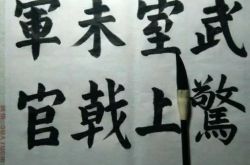 武驚
室上
未戟
軍官